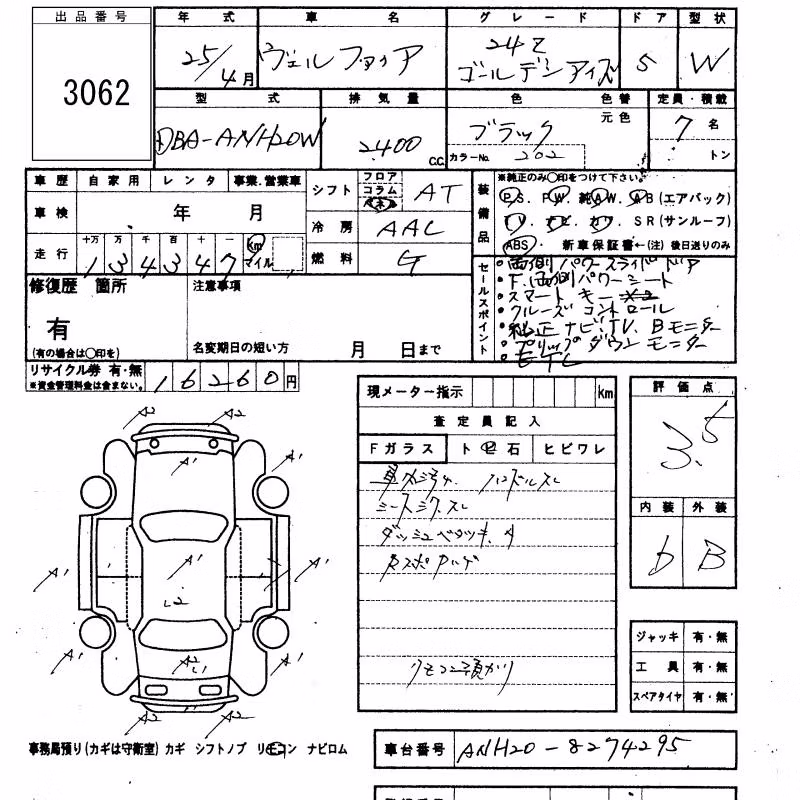 出品番号
3062
年式 車名 グレード ドア 型状
25/4月 ヴェルファイア 24Z ゴールデンアイズ 5 W
型式 排気量 色 色替 定員・積載
DBA-ANH20W 2400 C.C. ブラック 元色 7名
カラーNo. 202 トン
車歴 自家用 レンタ 事業.営業車
シフト フロア コラム AT
車検 年 月
冷房 AAC
走行 十万 万 千 百 十 一
134347 Km マイル
燃料 G
装備品
※純正のみ〇印をつけて下さい。
P.S. P.W. 純A.W. A B(エアバック)
SR(サンルーフ)
ABS. 新車保証書←(注)後日送りのみ
修復歴 箇所
有
(有の場合は〇印を)
注意事項
名変期日の短い方 月 日まで
セールスポイント
・両側パワースライドドア
・F.両側パワーシート
・スマートキー
・クルーズコントロール
・純正ナビ.TV.Bモニター
・フリップダウンモニター
・ETC
リサイクル券 有・無 16260円
※資金管理料金は含まない。
現メーター指示 Km
査定員記入
Fガラス ト石 ヒビワレ
ハンドルスレ
シートシワスレ
ダッシュベタツキ.
リモコン預かり
評価点
3.5
内装 外装
D B
ジャッキ 有・無
工具 有・無
スペアタイヤ 有・無
A2 A2
A1 A1 A1
A1 A1 A1
L2
A1 A2 L1 A1
A2 A2
事務局預り(カギは守衛室) カギ シフトノブ リモコン ナビロム
車台番号 ANH20-8274295